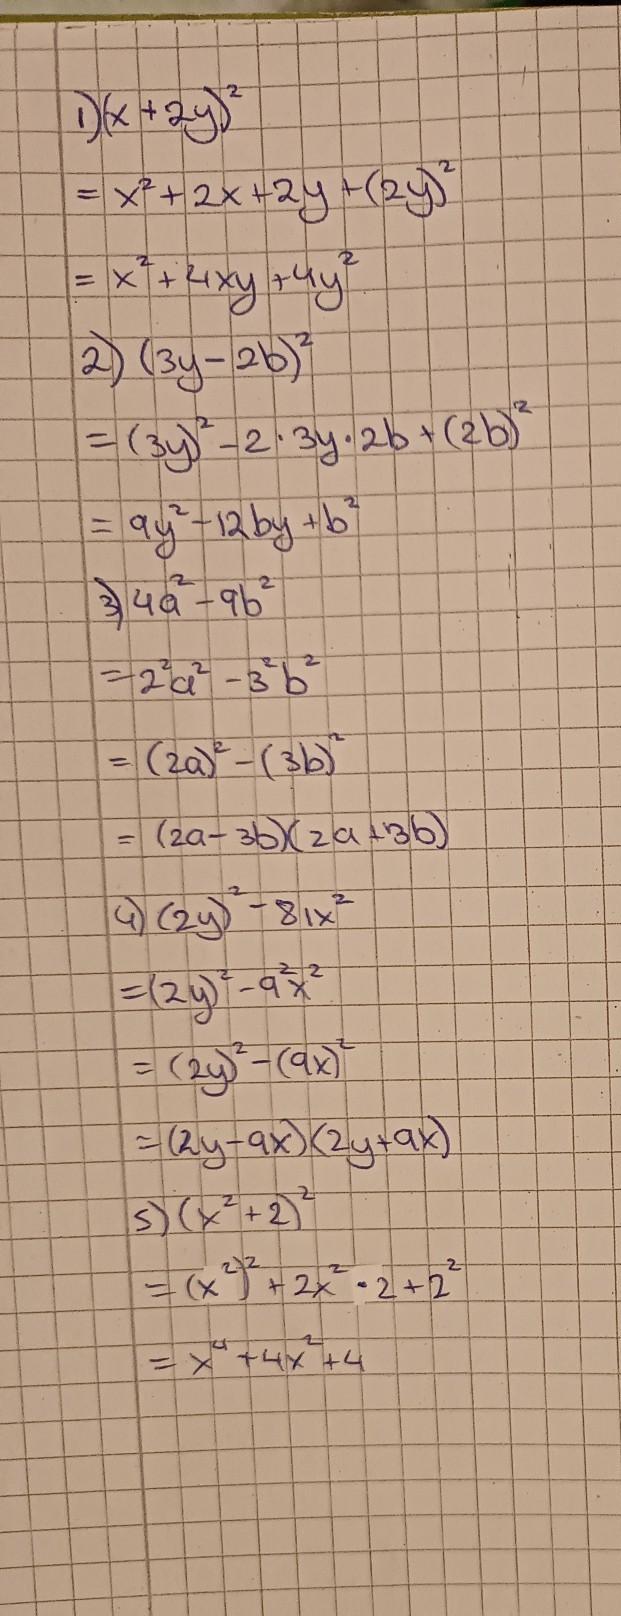 1) (x + 2y)²
= x² + 2x + 2y + (2y)²
= x² + 4xy + 4y²
2) (3y - 2b)²
= (3y)² - 2 · 3y · 2b + (2b)²
= 9y² - 12by + b²
3) 4a² - 9b²
= 2²a² - 3²b²
= (2a)² - (3b)²
= (2a - 3b)(2a + 3b)
4) (2y)² - 81x²
= (2y)² - 9²x²
= (2y)² - (9x)²
= (2y - 9x)(2y + 9x)
5) (x² + 2)²
= (x²)² + 2x² · 2 + 2²
= x⁴ + 4x² + 4